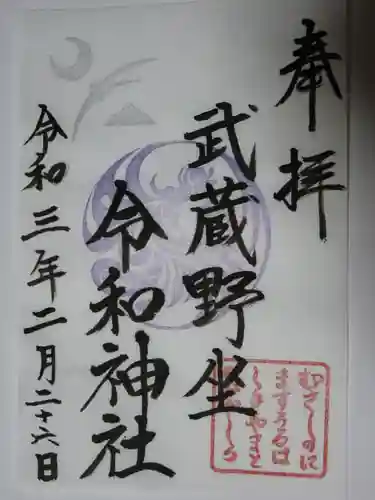 奉拝
武蔵野坐
令和神社
令和三年二月二十六日
むさしのに
ますうるは
しきやまと